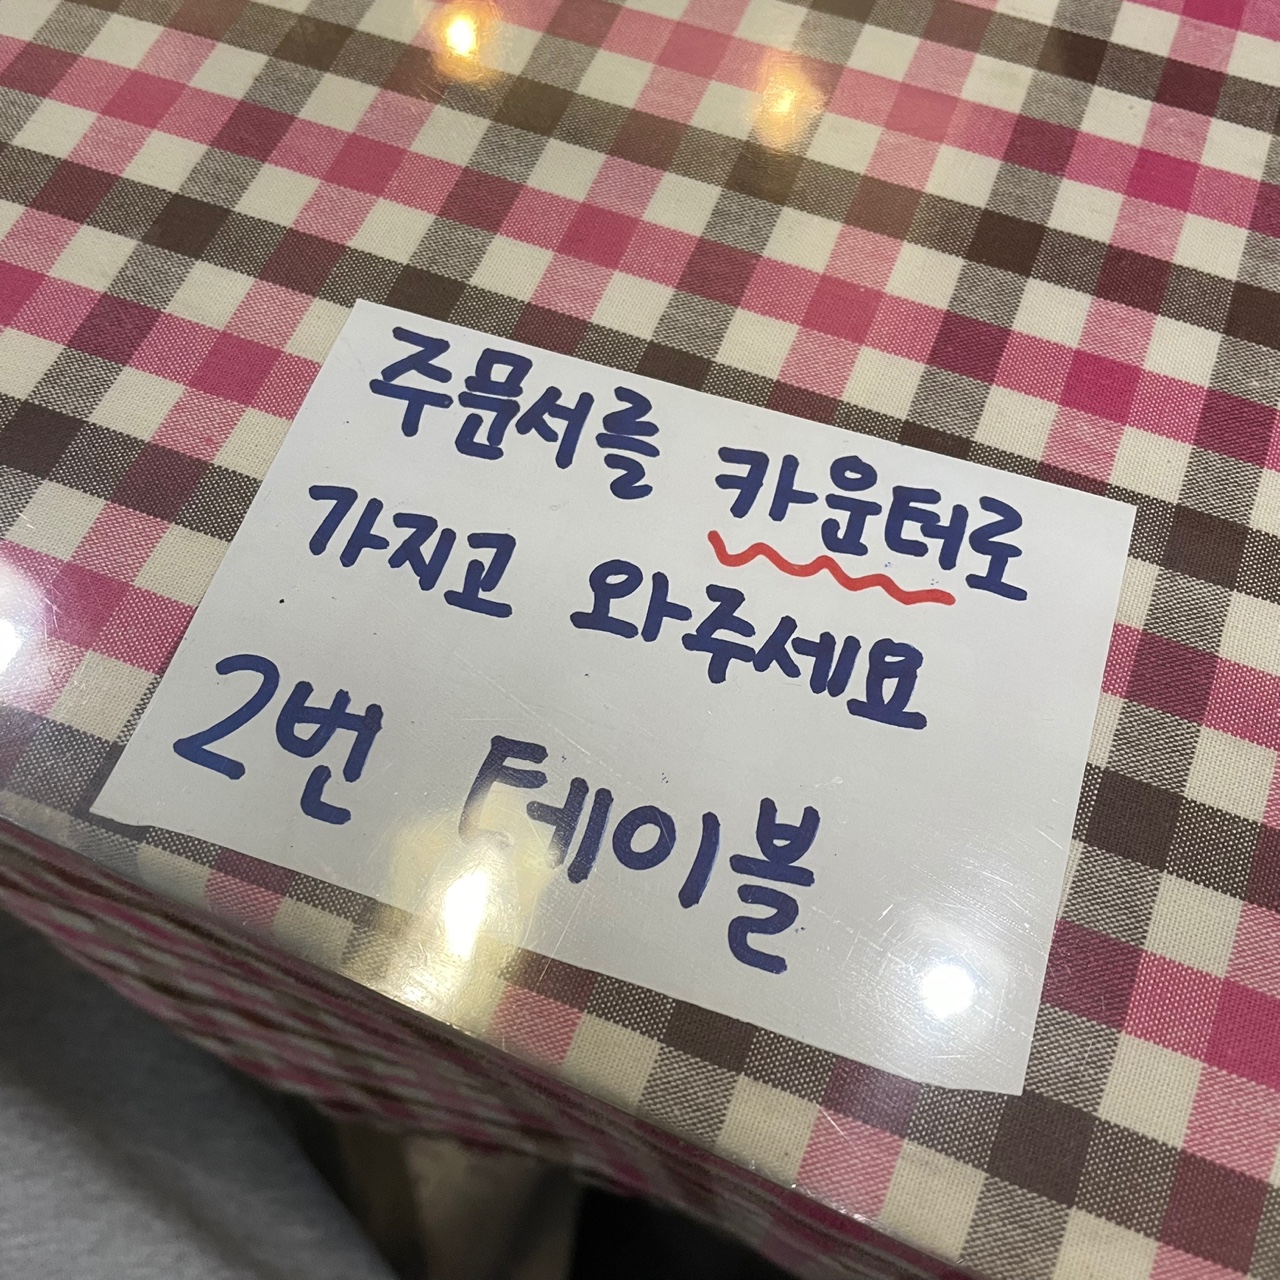 주문서를 카운터로
가지고 와주세요
2번 테이블